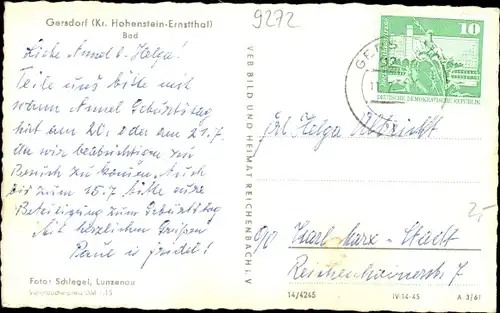 Gersdorf (Kr. Hohenstein-Ernstthal)
Bad
9272
Liebe Annel u. Helga!
Teile uns bitte mit
wann Annel Geburtstag
hat am 20. oder am 21.7.
da wir beabsichtigen zu
Besuch zu kommen. Auch
bis zum 15.7 bitte eure
Beteiligung zum Geburtstag
Mit herzlichen Grüßen
Paul u. Friedel!
Foto: Schlegel, Lunzenau
VEB BILD UND HEIMAT REICHENBACH i. V
10
DEUTSCHE DEMOKRATISCHE REPUBLIK
Frl Helga
Karl-Marx-Stadt
Reichenhainerstr. 7
2,-
14/4245
IV-14-45
A 3/61